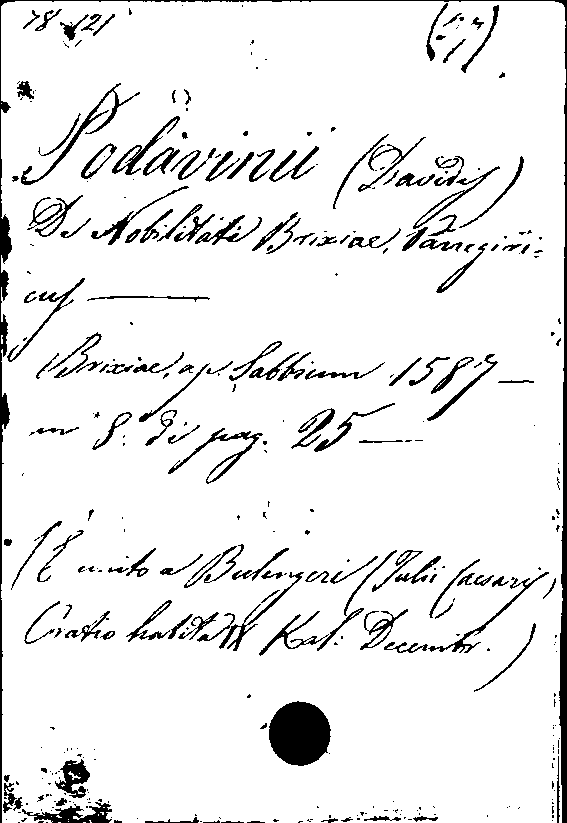 78-121
Podavinii (Davidis)
De Nobilitate Brixiae, Panegiri=
cus ———
Brixiae, ap. Sabbium 1587 —
in 8. di pag. 25 —
(È unito a Bulengeri (Julii Caesaris,
Oratio habita IX Kal: Decembr. )